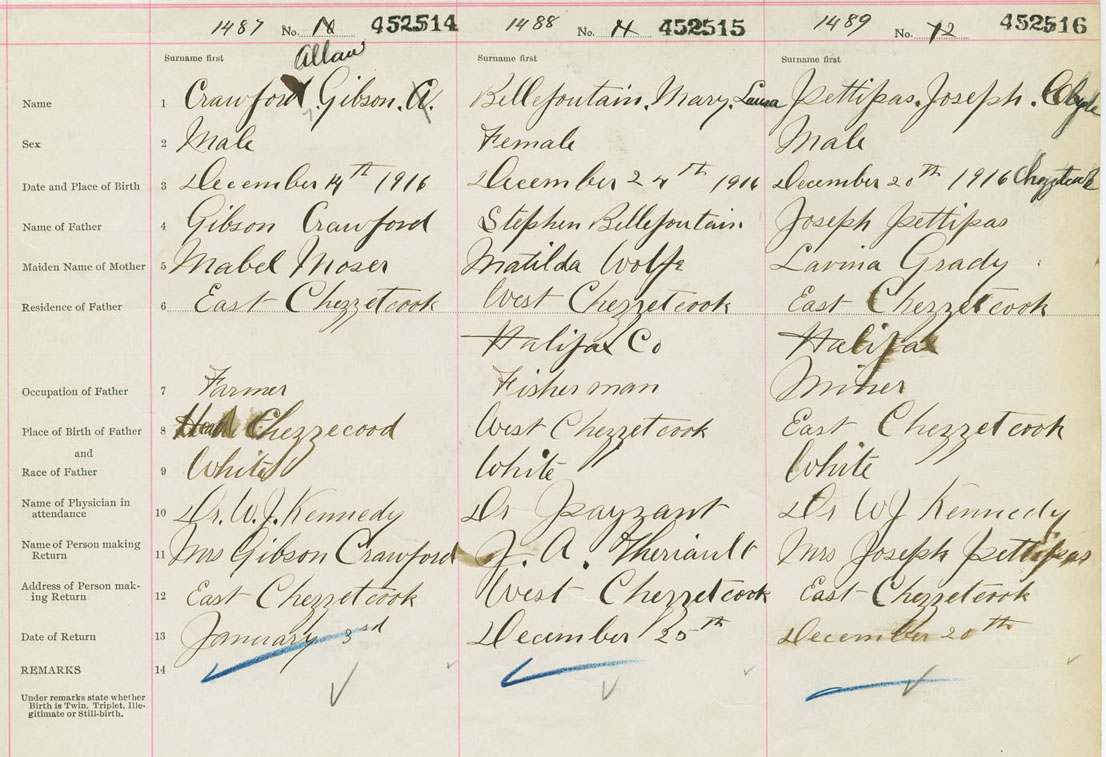 1487 No. 10 452514 1488 No. 11 452515 1489 No. 12 452516
Allan
Surname first Surname first Surname first
Name 1 Crawford, Gibson. A. Bellefountain. Mary. Laura Pettipas. Joseph. Clyde
Sex 2 Male Female Male
Date and Place of Birth 3 December 14th 1916 December 24th 1916 December 20th 1916 Chezzetcook
Name of Father 4 Gibson Crawford Stephen Bellefountain. Joseph Pettipas
Maiden Name of Mother 5 Mabel Moser Matilda Wolfe Lavina Grady
Residence of Father 6 East Chezzetcook West Chezzetcook East Chezzetcook
Halifax Co Halifax
Occupation of Father 7 Farmer Fisherman Miner
Place of Birth of Father 8 Head Chezzecood West Chezzetcook East Chezzetcook
and
Race of Father 9 White White White
Name of Physician in
attendance 10 Dr. W. J. Kennedy Dr Payzant Dr W J Kennedy
Name of Person making
Return 11 Mrs Gibson Crawford J. A. Theriault Mrs Joseph Pettipas
Address of Person mak-
ing Return 12 East Chezzetcook West Chezzetcook East Chezzetcook
Date of Return 13 January 3rd December 25th December 20th
REMARKS 14
Under remarks state whether
Birth is Twin, Triplet, Ille-
gitimate or Still-birth.